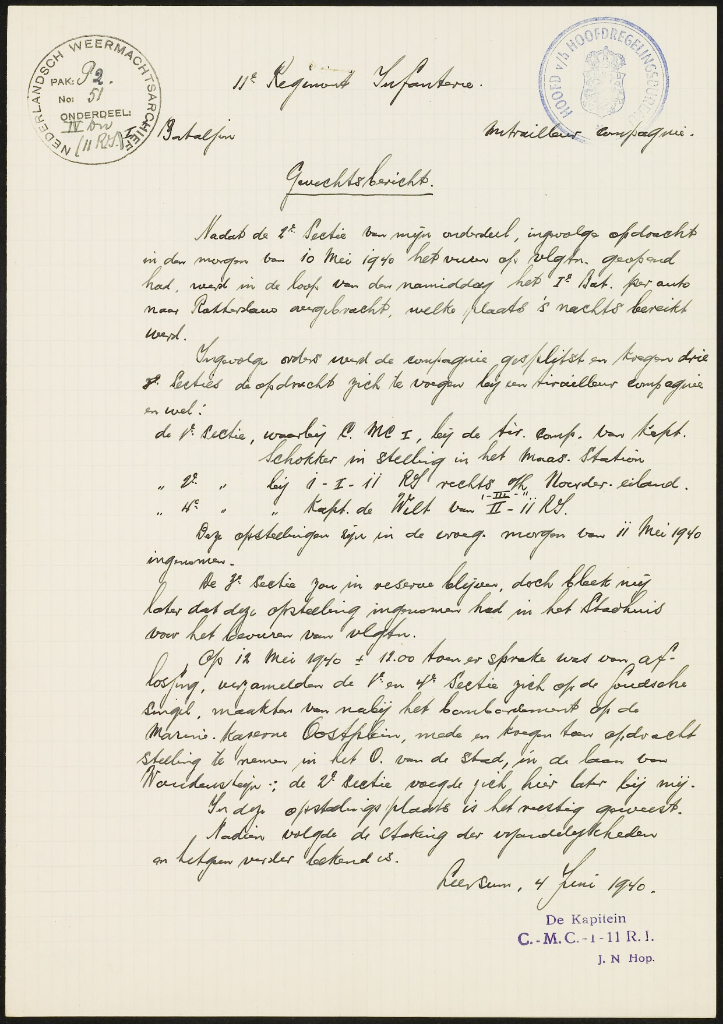 NEDERLANDSCH WEERMACHTSARCHIEF
PAK: 92.
No: 51
ONDERDEEL:
IV Div
(11 R.I.)
HOOFD v/h HOOFDREGELINGSBUREAU
11e Regiment Infanterie.
I Bataljon
Mitrailleur Compagnie.
Gevechtsbericht.
Nadat de 2e Sectie van mijn onderdeel, ingevolge opdracht
in den morgen van 10 Mei 1940 het vuur op vlgtn. geopend
had, werd in de loop van den namiddag het Ie Bat. per auto
naar Rotterdam overgebracht, welke plaats 's nachts bereikt
werd.
Ingevolge orders werd de compagnie gesplitst en kregen drie
Secties de opdracht zich te voegen bij een tirailleur compagnie
en wel:
de 1e Sectie, waarbij C. MC I, bij de tir. comp. van Kapt.
Schokker in stelling in het Maas-Station
" 2e " bij 1-I-11 RI rechts o/h Noorder-eiland.
" 4e " " Kapt. de Wilt van II-11 RI.
1-III-"
Deze opstellingen zijn in de vroege morgen van 11 Mei 1940
ingenomen.
De 3e Sectie zou in reserve blijven, doch bleek mij
later dat deze opstelling ingenomen had in het Stadhuis
voor het bevuren van vlgtn.
Op 12 Mei 1940 ± 12.00 toen er sprake was van af-
lossing, verzamelden de 1e en 4e Sectie zich op de Goudsche
Singel, maakten van nabij het bombardement op de
Marine-Kaserne Oostplein, mede en kregen toen opdracht
stelling te nemen in het O. van de stad, in de laan van
Woudensteijn; de 2e Sectie voegde zich hier later bij mij.
In deze opstellingsplaats is het rustig geweest.
Nadien volgde de staking der vijandelijkheden
en hetgeen verder bekend is.
Leersum, 4 Juni 1940.
De Kapitein
C.-M.C.-1-11 R.I.
J. N Hop.